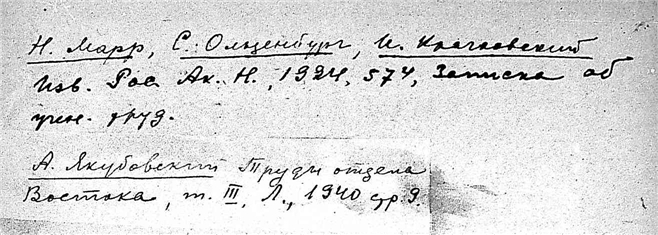 Н. Марр, С. Ольденбург, И. Крачковский
Изв. Рос Ак. Н., 1924, 574, Записка об
учен. труд.
А. Якубовский Труды отдела
Востока, т. III, Л., 1940 стр. 9.